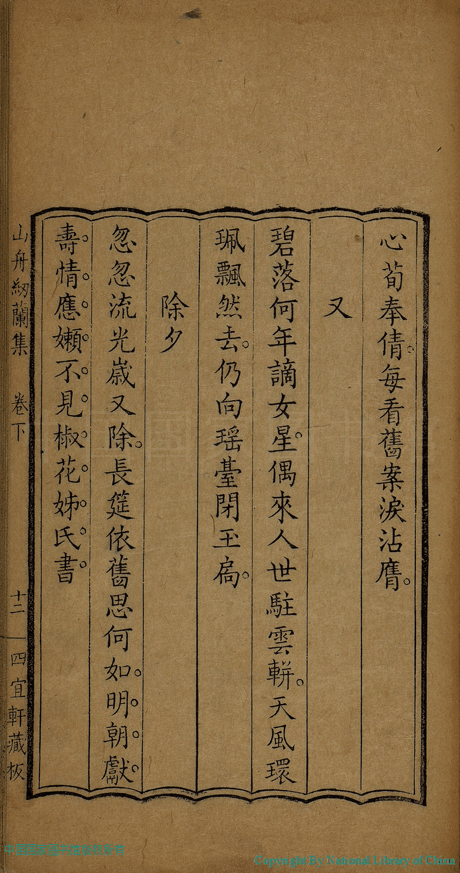 心荀奉倩每看舊案淚沾膺。
又
碧落何年謫女星。偶來人世駐雲軿。天風環
珮飄然去。仍向瑶臺閉玉扃。
除夕
忽忽流光歲又除。長筵依舊思何如。明朝獻
壽情應嬾。不見椒花姊氏書
山舟紉蘭集 卷下 十二 四宜軒藏板
Copyright By National Library of China